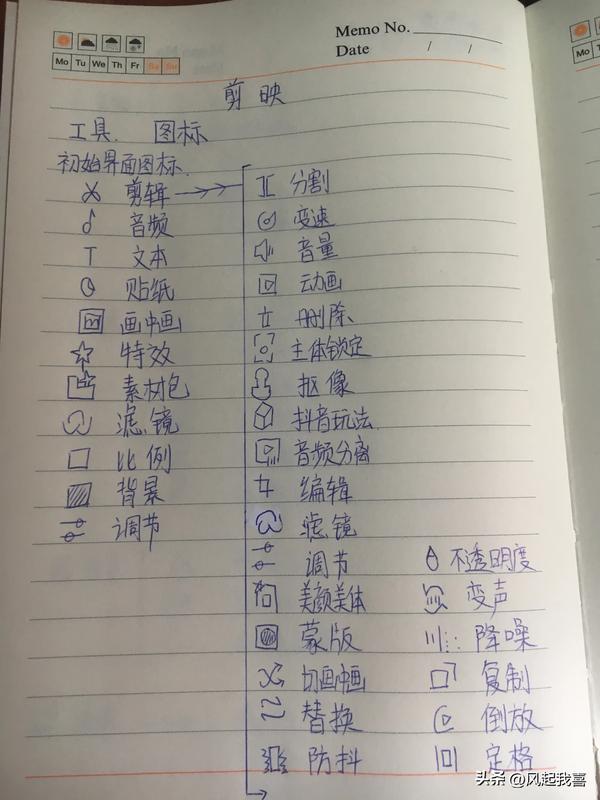 Memo No.
Mo Tu We Th Fr Sa Su
Date / /
剪映
工具. 图标
初始界面图标.
剪辑 分割
音频 变速
文本 音量
贴纸 动画
画中画 删除
特效 主体锁定
素材包 抠像
滤镜 抖音玩法.
比例 音频分离
背景 编辑
调节 滤镜
调节 不透明度
美颜美体 变声
蒙版 降噪
切画中画 复制
替换 倒放
防抖 定格
头条 @风起我喜